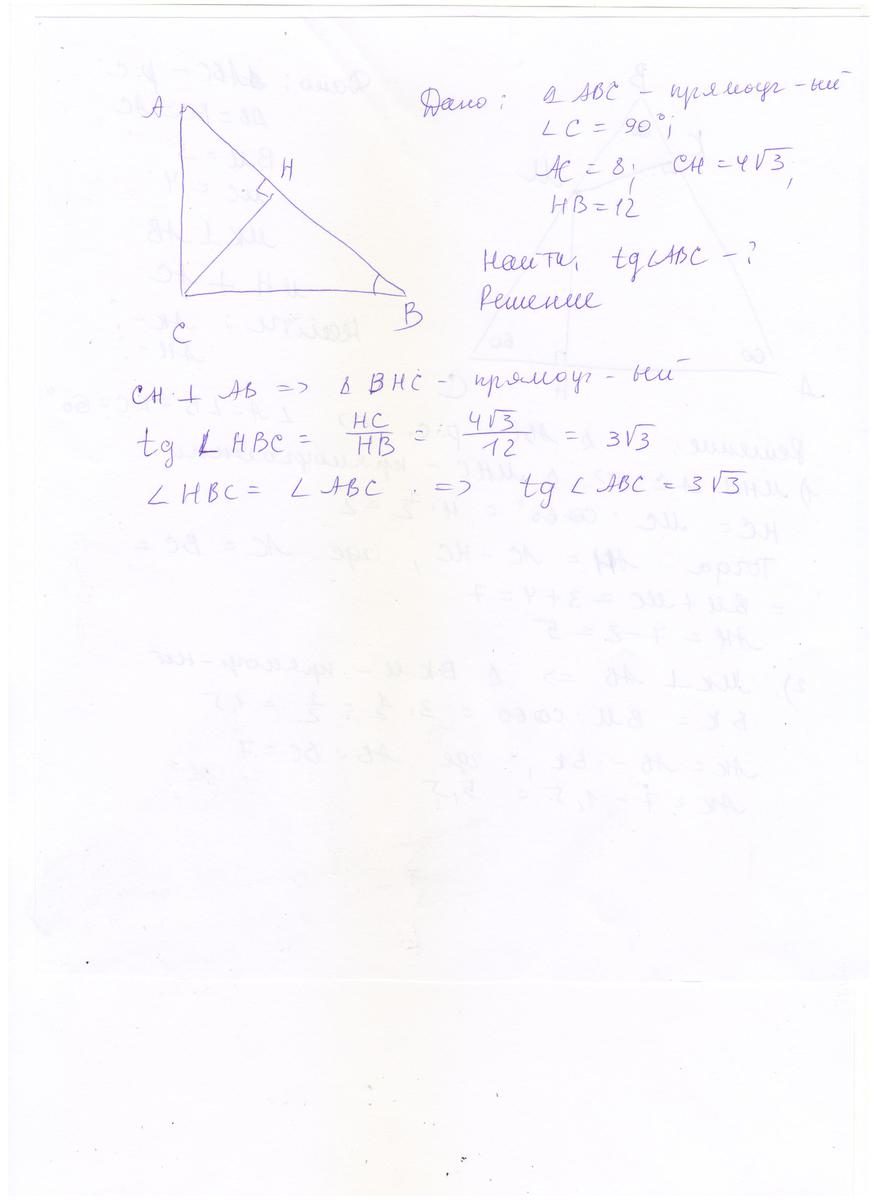 A
H
C
B
Дано: Δ ABC – прямоуг-ый
∠C = 90°;
AC = 8; CH = 4√3;
HB = 12
Найти: tg∠ABC – ?
Решение
CH ⊥ AB => Δ BHC – прямоуг-ый
tg ∠HBC = HC/HB = 4√3/12 = 3√3
∠HBC = ∠ABC => tg ∠ABC = 3√3